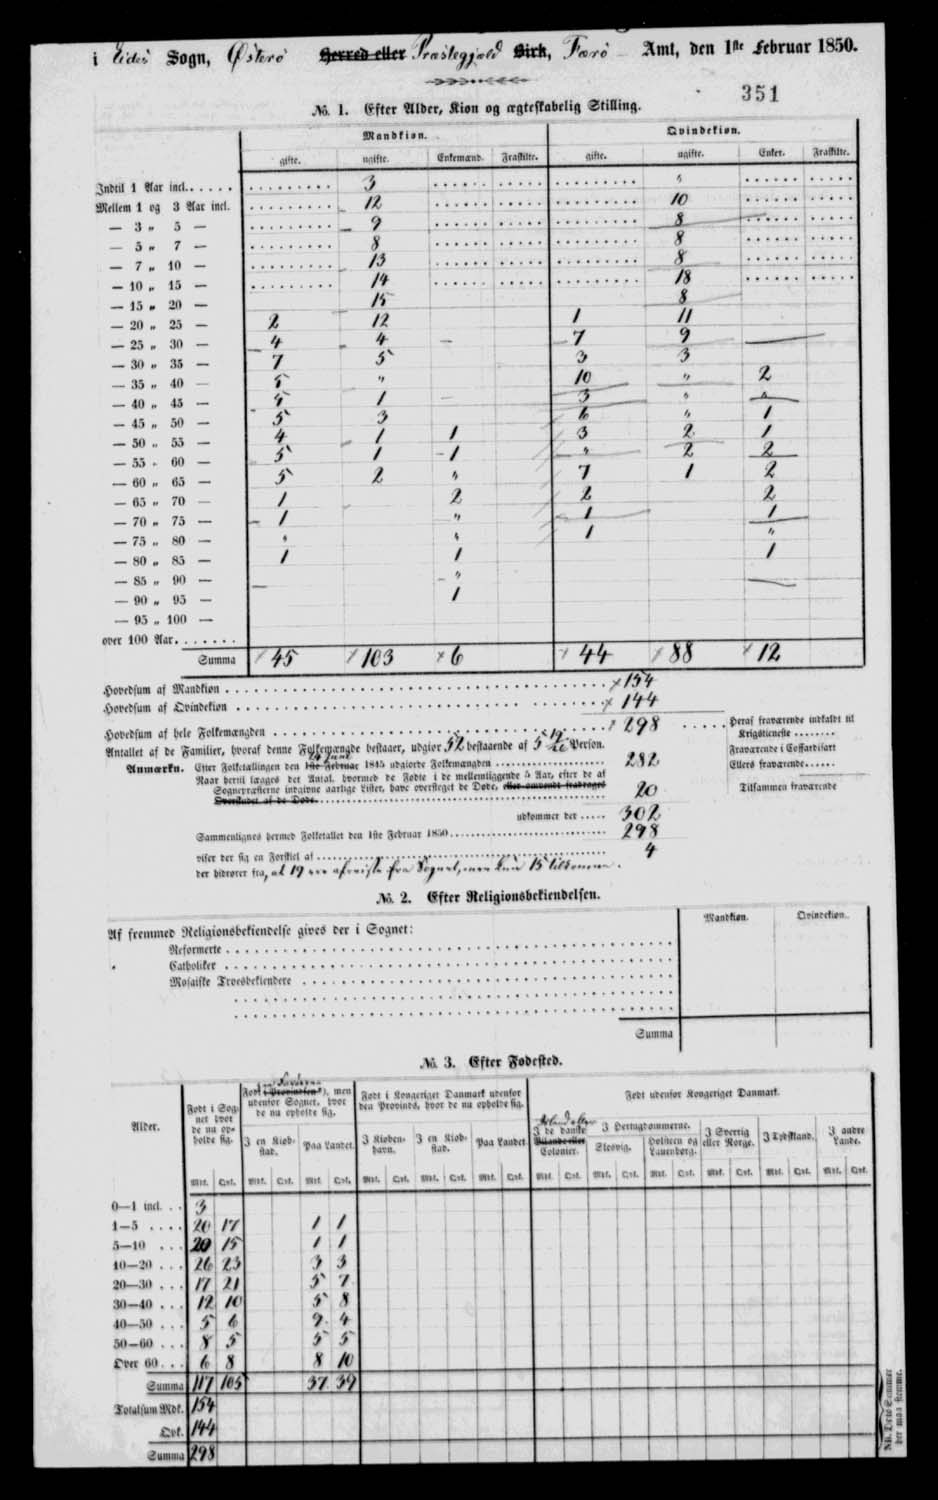 i Eides Sogn, Østerø Herred eller Præstegjæld Birk, Færø Amt, den 1ste Februar 1850.
351
No. 1. Efter Alder, Kiøn og ægteskabelig Stilling.
Mandkiøn. Qvindekiøn.
gifte. ugifte. Enkemænd. Fraskilte. gifte. ugifte. Enker. Fraskilte.
Indtil 1 Aar incl. 3 "
Mellem 1 og 3 Aar incl. 12 10
— 3 „ 5 — 9 8
— 5 „ 7 — 8 8
— 7 „ 10 — 13 8
— 10 „ 15 — 14 18
— 15 „ 20 — 15 8
— 20 „ 25 — 2 12 1 11
— 25 „ 30 — 4 4 — 7 9
— 30 „ 35 — 7 5 3 3
— 35 „ 40 — 5 " 10 " 2
— 40 „ 45 — 5 1 3 " "
— 45 „ 50 — 5 3 6 " 1
— 50 „ 55 — 4 1 1 3 2 1
— 55 „ 60 — 5 1 1 " 2 2
— 60 „ 65 — 5 2 " 7 1 2
— 65 „ 70 — 1 2 2 2
— 70 „ 75 — 1 " 1 1
— 75 „ 80 — " " 1 "
— 80 „ 85 — 1 1 1
— 85 „ 90 — "
— 90 „ 95 — 1
— 95 „ 100 —
over 100 Aar.
Summa 45 103 6 44 88 12
Hovedsum af Mandkiøn 154
Hovedsum af Qvindekiøn 144
Hovedsum af hele Folkemængden 298
Heraf fraværende indkaldt til Krigstieneste
Fraværende i Coffardifart
Ellers fraværende
Tilsammen fraværende
Antallet af de Familier, hvoraf denne Folkemængde bestaaer, udgiør 52 bestaaende af 5 Person.
Anmærkn. Efter Folketællingen den 1ste Februar 1845 udgiorde Folkemængden 282
Naar hertil lægges det Antal, hvormed de Fødte i de mellemliggende 5 Aar, efter de af
Sognepræsterne indgivne aarlige Lister, have oversteget de Døde, eller omvendt fradrages
Overskudet af de Døde 20
udkommer der 302
Sammenlignes hermed Folketallet den 1ste Februar 1850 298
viser der sig en Forskiel af 4
der hidrører fra, at 19 ere afreiste fra Sognet, men kun 15 tilkomne.
No. 2. Efter Religionsbekiendelsen.
Mandkiøn. Qvindekiøn.
Af fremmed Religionsbekiendelse gives der i Sognet:
Reformerte
Catholiker
Mosaiske Troesbekiendere
Summa
No. 3. Efter Fødested.
Alder.
Født i Sognet hvor de nu opholde sig.
Født i Provindsen*), men udenfor Sognet, hvor de nu opholde sig.
Født i Kongeriget Danmark udenfor den Provinds, hvor de nu opholde sig.
Født udenfor Kongeriget Danmark.
I en Kiøbstad. Paa Landet. I Kiøbenhavn. I en Kiøbstad. Paa Landet. I de danske Bilande eller Colonier. I Hertugdømmerne. Slesvig. Holsteen og Lauenborg. I Sverrig eller Norge. I Tydskland. I andre Lande.
Mk. Qvk. Mk. Qvk. Mk. Qvk. Mk. Qvk. Mk. Qvk. Mk. Qvk. Mk. Qvk. Mk. Qvk. Mk. Qvk. Mk. Qvk. Mk. Qvk. Mk. Qvk.
0—1 incl. 3
1—5 20 17 1 1
5—10 20 15 1 1
10—20 26 23 3 3
20—30 17 21 5 7
30—40 12 10 5 8
40—50 5 6 9 4
50—60 8 5 5 5
Over 60 6 8 8 10
Summa 117 105 37 39
Totalsum Mdk. 154
Qvk. 144
Summa 298
NB. Dette Summer der maa stemme.